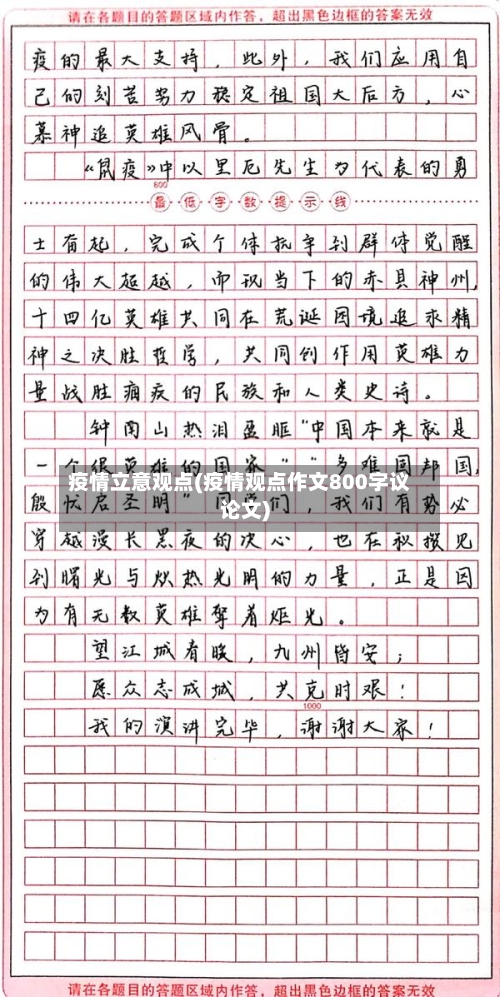 请在各题目的答题区域内作答，超出黑色边框的答案无效
疫的最大支持，此外，我们应用自
己的刻苦努力稳定祖国大后方，心
慕神追英雄风骨。
《鼠疫》中以里厄先生为代表的勇
600
最低字数提示线
士奋起，完成个体抗争到群体觉醒
的伟大超越，而现当下的赤县神州，
十四亿英雄共同在荒诞困境追求精
神之决胜哲学，共同创作用英雄力
量战胜瘟疫的民族和人类史诗。
钟南山热泪盈眶“中国本来就是
一个很英雄的国家”“多难国邦国，
疫情立意观点(疫情观点作文800字议
论文)
殷忧启圣明”同学们，我们有势必
穿越漫长黑夜的决心，也在积攒见
到曙光与炽热光明的力量，正是因
为有无数英雄擎着炬光。
望江城春暖，九州皆安；
愿众志成城，共克时艰！
1000
我的演讲完毕，谢谢大家！
请在各题目的答题区域内作答，超出黑色边框的答案无效